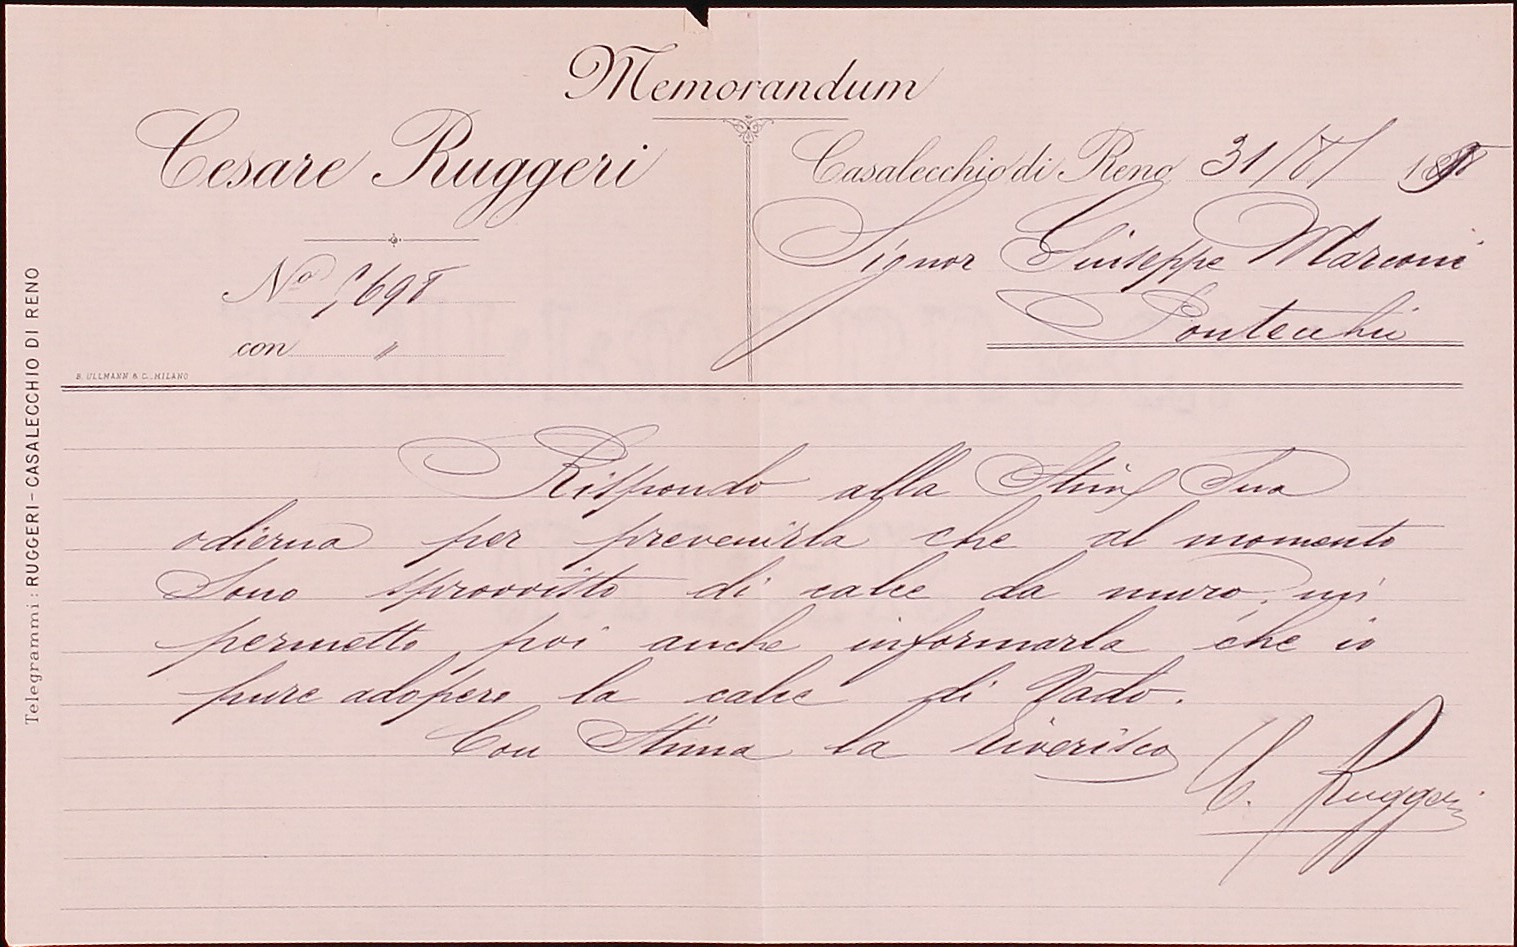 Memorandum
Cesare Ruggeri
Casalecchio di Reno 31/8/
Signor Giuseppe Marconi
Pontecchio
No
con "
B. ULLMANN & C., MILANO
Telegrammi: RUGGERI - CASALECCHIO DI RENO
Rispondo alla Stim Sua
odierna per prevenirla che al momento
sono sprovvisto di calce da muro, mi
permetto poi anche informarla che io
pure adopero la calce di Vado.
Con Stima la riverisco
C. Ruggeri